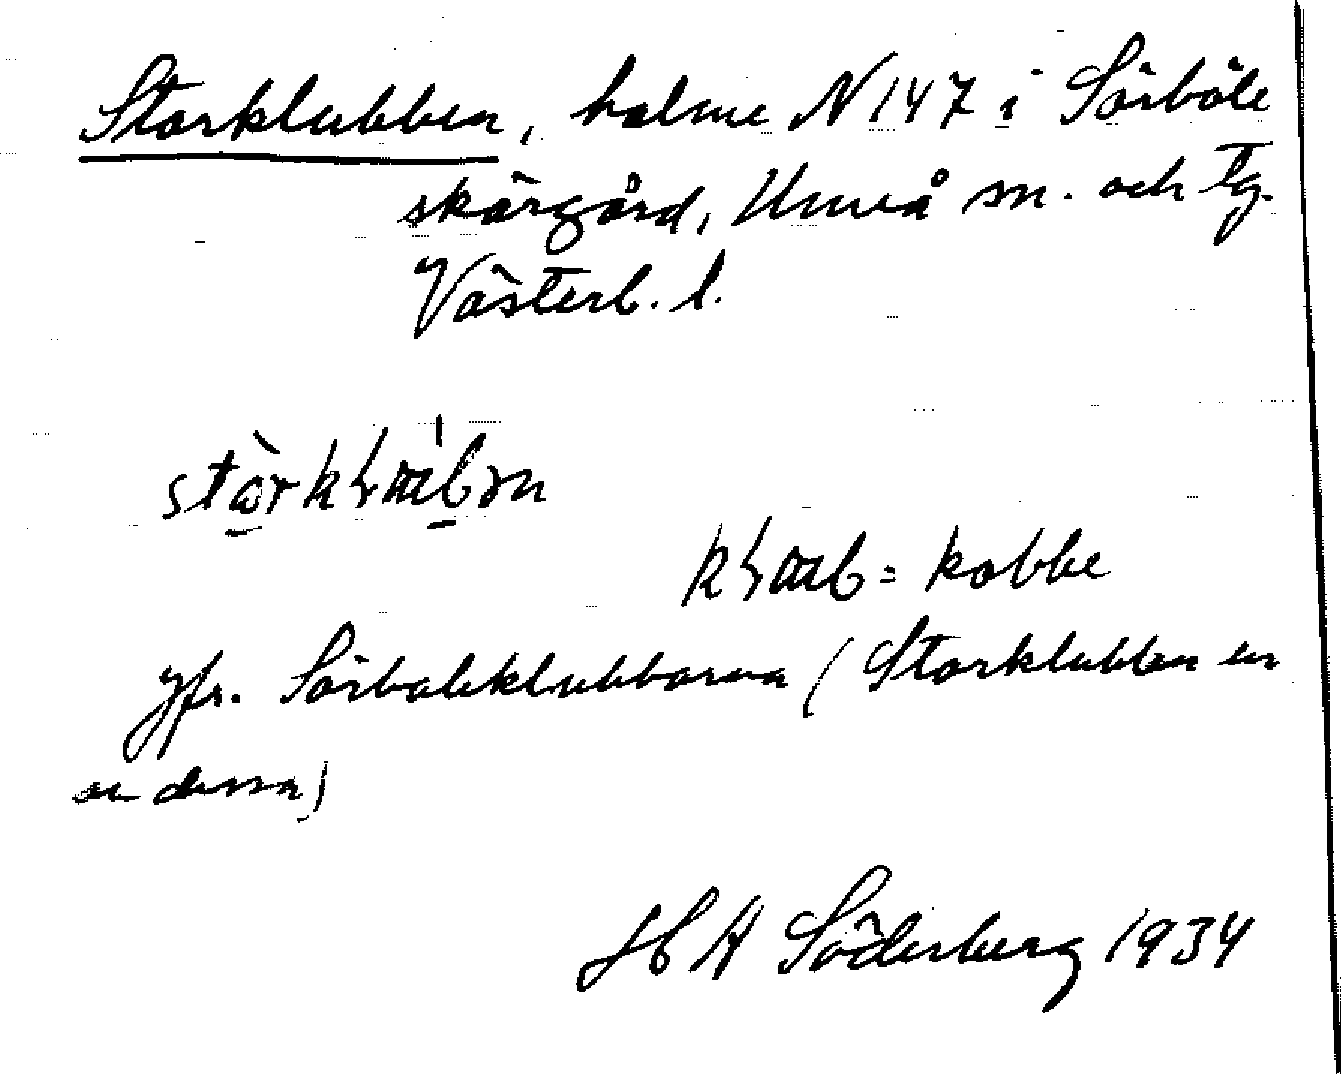 Storklubben, holme N 147 i Sörböle
skärgård, Umeå sn. och tg.
Västerb. l.
= kobbe
Jfr. Sörböleklubbarna (Storklubben en
av dessa)
H A Söderberg 1934